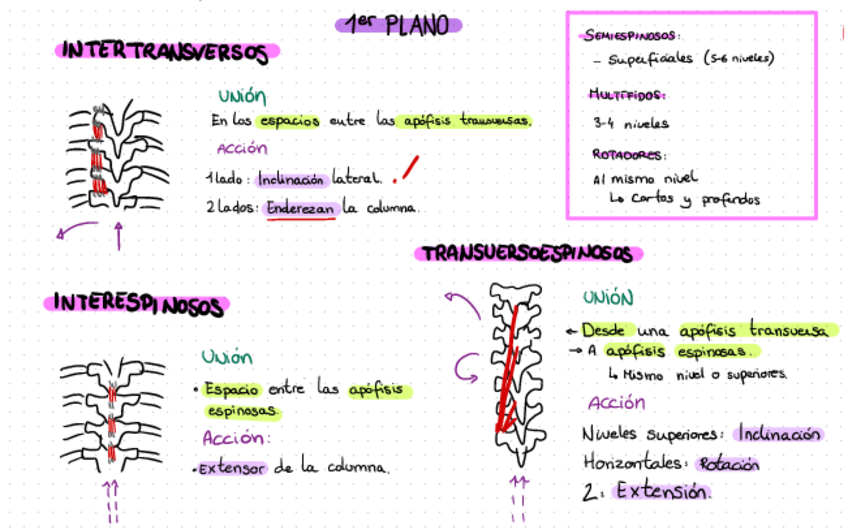 1er PLANO
INTERTRANSVERSOS
Unión
En los espacios entre las apófisis transversas.
Acción
1 lado: Inclinación lateral.
2 lados: Enderezan la columna.
SEMIESPINOSOS:
- Superficiales (5-6 niveles)
MULTÍFIDOS:
3-4 niveles
ROTADORES:
Al mismo nivel
↳ Cortos y profundos
INTERESPINOSOS
Unión
• Espacio entre las apófisis
espinosas
Acción:
• Extensor de la columna.
TRANSVERSOESPINOSOS
UNIÓN
← Desde una apófisis transversa
→ A apófisis espinosas.
↳ Mismo nivel o superiores.
Acción
Niveles superiores: Inclinación
Horizontales: Rotación
2: Extensión.